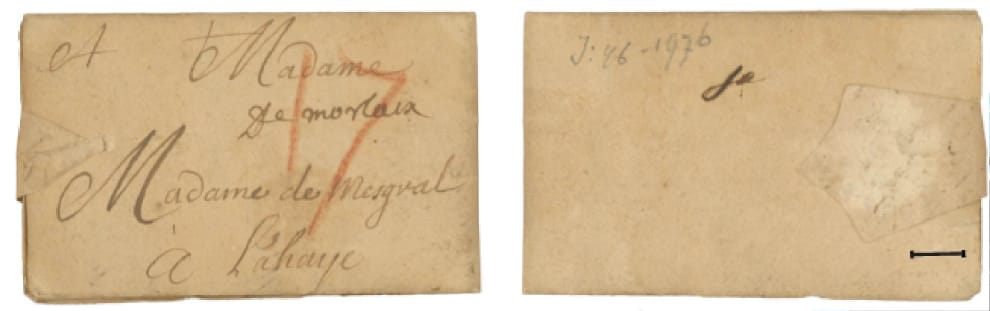 A Madame
De morlaix
17
Madame de Mesgral
à Lahaye
J: 46 - 1976